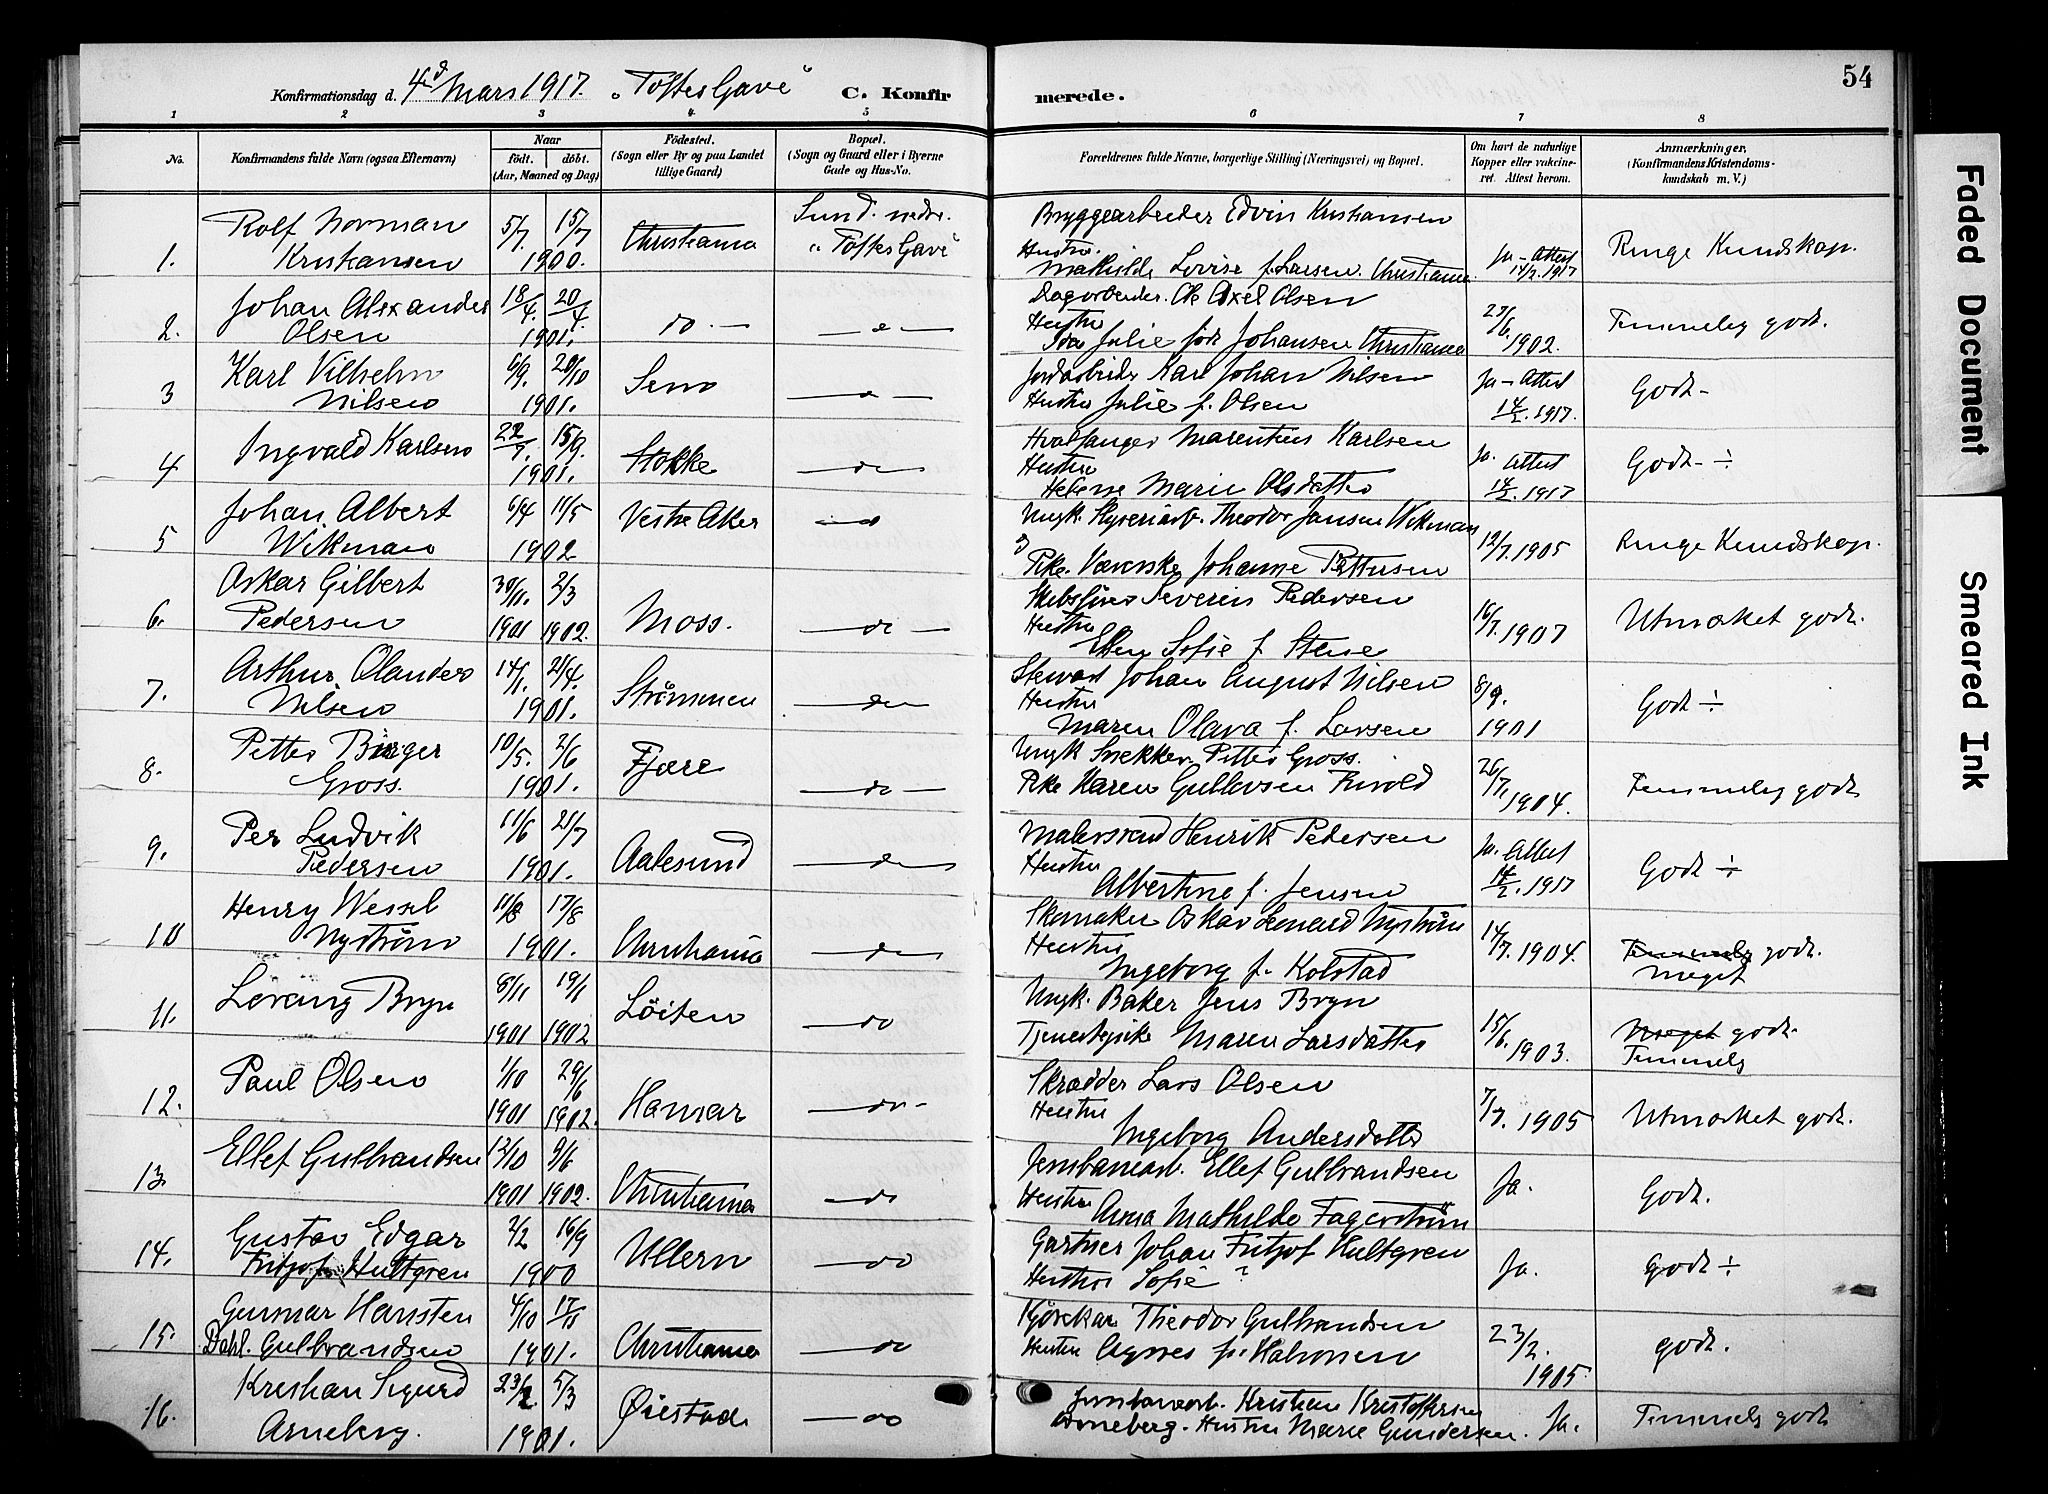 Konfirmationsdag d. 4d Mars 1917. "Toftes Gave"
C. Konfirmerede.
54
1 2 3 4 5 6 7 8
No.
Konfirmandens fulde Navn (ogsaa Efternavn)
Naar
födt. döbt.
(Aar, Maaned og Dag)
Födested.
(Sogn eller By og paa Landet
tillige Gaard)
Bopæl.
(Sogn og Gaard eller i Byerne
Gade og Hus-No.
Forældrenes fulde Navne, borgerlige Stilling (Næringsvei) og Bopæl.
Om havt de naturlige
Kopper eller vakcine-
ret. Attest herom.
Anmærkninger.
(Konfirmandens Kristendoms-
kundskab m. V.)
1. Rolf Norman Kristiansen 5/7. 15/7 1900. Christiania Sund. nedr. "Toftes Gave"
Bryggearbeider Edvin Kristiansen
Hustru Mathilde Lovise f. Larsen. Christiania. Ja - Attest 14/2. 1917 Ringe Kundskap.
2. Johan Alexander Olsen 18/4. 20/4. 1901. do. - - do -
Dagarbeider. Ole Axel Olsen
Hustru Ida Julie født Johansen Christiania 23/6. 1902. Temmelig godt.
3 Karl Vilhelm Nilsen 6/9. 20/10 1901. Sem - do -
Jordarbeider Karl Johan Nilsen
Hustru Julie f. Olsen Ja - Attest 14/2. 1917. Godt -
4 Ingvald Karlsen 22/7. 15/9. 1901. Stokke - do -
Hvalfanger Marentius Karlsen
Hustru Marie Olsdatter Ja. Attest 14/2. 1917 Godt - ÷
5 Johan Albert Wikman 6/4 11/5 1902 Vestre Aker - do
Ungk. Theodor Jansen Wikman
Pike. Væverske Johanne Pettersen 12/7. 1905 Ringe Kundskap.
6. Oskar Gilbert Pedersen 30/11. 1901 2/3 1902. Moss. - do -
Skibsfører Severin Pedersen
Hustru Ellen Sofie f. Stene 16/7. 1907 Utmærket godt.
7. Arthur Olander Nilsen 14/1. 21/4. 1901. Strømmen - do -
Stewart Johan August Nilsen
Hustru Maren Olava f. Larsen 8/9. 1901 Godt ÷
8. Petter Birger Gross. 10/5. 2/6 1901. Fjære - do -
Ungk Snekker Petter Gross.
Pike Karen Gullovsen Frivold 26/7. 1904. Temmelig godt
9. Per Ludvik Pedersen 11/6 21/7 1901. Aalesund - do -
Malersvend Henrik Pedersen
Hustru Albertine f. Jensen Ja. Attest 14/2. 1917 Godt ÷
10 Henry Wessel Nystrøm 11/8 17/8 1901. Christiania - do -
Skomaker Oskar Leonard Nystrøm
Hustru Ingeborg f. Kolstad 14/7. 1904. Temmelig godt.
Meget
11. Lorang Bryn 8/11 1901 19/1 1902 Löiten - do
Ungk. Baker Jens Bryn
Tjenestepike Maren Larsdatter 15/6. 1903. Meget godt.
Temmelig
12. Paul Olsen 1/10 1901 29/6 1902. Hamar - do -
Skrædder Lars Olsen
Hustru Ingeborg Andersdatter 7/7. 1905 Utmærket godt.
13. Ellef Gulbrandsen 12/10 1901 9/6 1902. Christiania - do
Jernbanearb. Ellef Gulbrandsen
Hustru Anna Mathilde Fagerstrøm Ja. Godt.
14. Gustav Edgar Fritjof Hultgren 2/2 16/9 1900 Ullern - do
Gartner Johan Fritjof Hultgren
Hustru Sofie ? Ja. godt ÷
15. Gunnar Hansten Dahl. Gulbrandsen 4/10 17/11 1901. Christiania - do
Kjørekar Theodor Gulbrandsen
Hustru Agnes f. Halvorsen 23/2. 1905 godt.
16. Kristian Sigurd Arneberg. 23/2 5/3 1901. Øiestad - do
Jernbanearb. Kristian Kristoffersen
Arneberg. Hustru Marie Gundersen. Ja. Temmelig godt
Faded Document
Smeared Ink